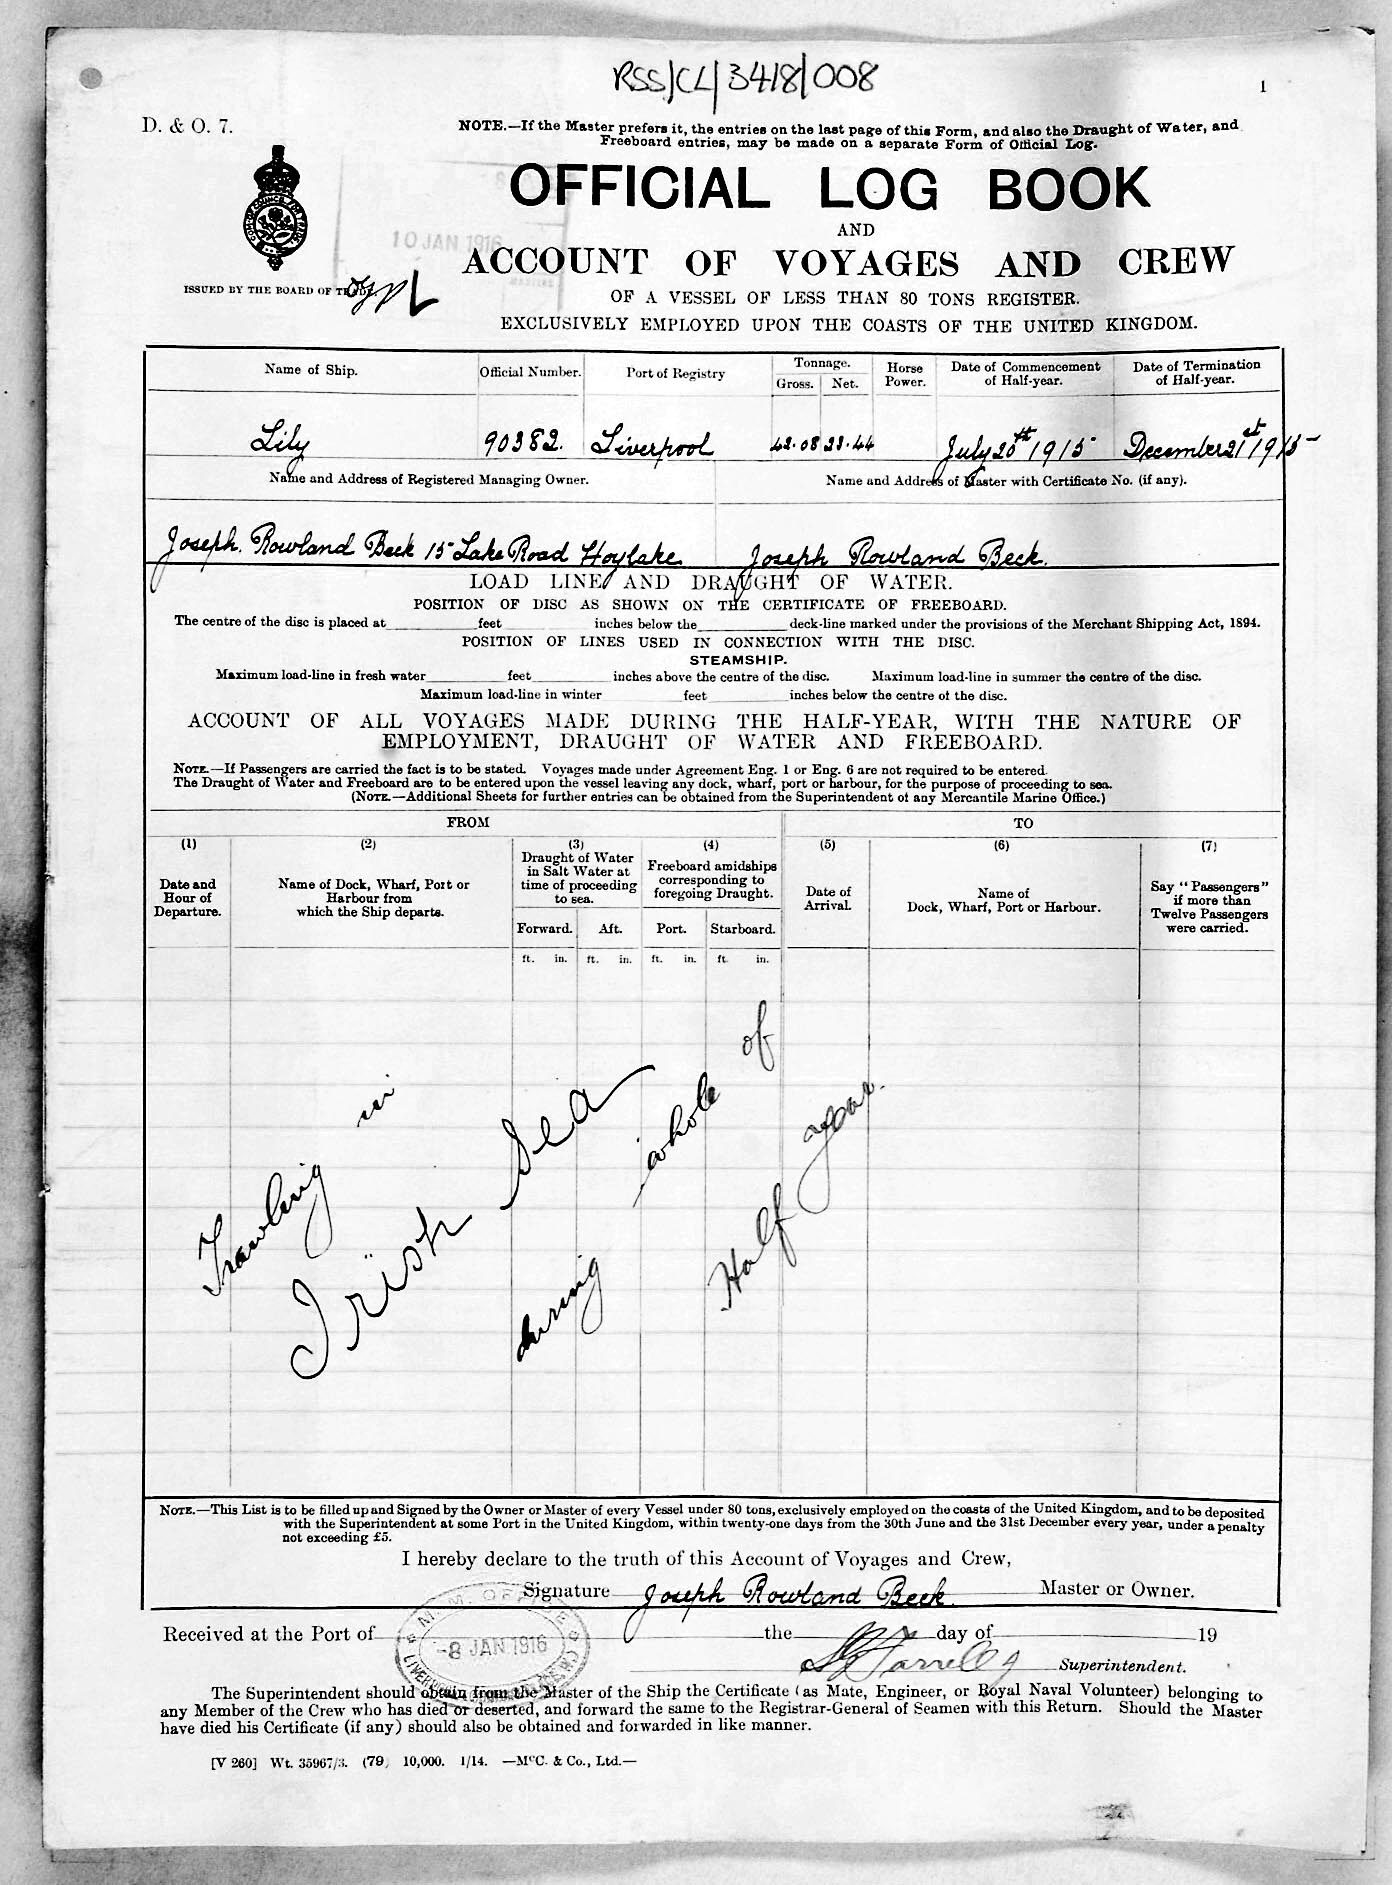 RSS/CL/3418/008
1
D. & O. 7.
NOTE.—If the Master prefers it, the entries on the last page of this Form, and also the Draught of Water, and
Freeboard entries, may be made on a separate Form of Official Log.
OFFICIAL LOG BOOK
AND
10 JAN 1916
ACCOUNT OF VOYAGES AND CREW
ISSUED BY THE BOARD OF TRADE.
OF A VESSEL OF LESS THAN 80 TONS REGISTER.
EXCLUSIVELY EMPLOYED UPON THE COASTS OF THE UNITED KINGDOM.
Name of Ship. Official Number. Port of Registry Tonnage. Gross. Net. Horse Power. Date of Commencement of Half-year. Date of Termination of Half-year.
Lily 90382. Liverpool 42.08 23.44 July 20th 1915 December 21st 1915
Name and Address of Registered Managing Owner. Name and Address of Master with Certificate No. (if any).
Joseph. Rowland Beck 15 Lake Road Hoylake Joseph Rowland Beck.
LOAD LINE AND DRAUGHT OF WATER.
POSITION OF DISC AS SHOWN ON THE CERTIFICATE OF FREEBOARD.
The centre of the disc is placed at feet inches below the deck-line marked under the provisions of the Merchant Shipping Act, 1894.
POSITION OF LINES USED IN CONNECTION WITH THE DISC.
STEAMSHIP.
Maximum load-line in fresh water feet inches above the centre of the disc. Maximum load-line in summer the centre of the disc.
Maximum load-line in winter feet inches below the centre of the disc.
ACCOUNT OF ALL VOYAGES MADE DURING THE HALF-YEAR, WITH THE NATURE OF
EMPLOYMENT, DRAUGHT OF WATER AND FREEBOARD.
NOTE.—If Passengers are carried the fact is to be stated. Voyages made under Agreement Eng. 1 or Eng. 6 are not required to be entered.
The Draught of Water and Freeboard are to be entered upon the vessel leaving any dock, wharf, port or harbour, for the purpose of proceeding to sea.
(NOTE.—Additional Sheets for further entries can be obtained from the Superintendent of any Mercantile Marine Office.)
FROM TO
(1) (2) (3) (4) (5) (6) (7)
Date and Hour of Departure.
Name of Dock, Wharf, Port or Harbour from which the Ship departs.
Draught of Water in Salt Water at time of proceeding to sea.
Freeboard amidships corresponding to foregoing Draught.
Date of Arrival.
Name of Dock, Wharf, Port or Harbour.
Say "Passengers" if more than Twelve Passengers were carried.
Forward. Aft. Port. Starboard.
ft. in. ft. in. ft. in. ft. in.
Trawling in
Irish Sea
during whole of
Half year.
NOTE.—This List is to be filled up and Signed by the Owner or Master of every Vessel under 80 tons, exclusively employed on the coasts of the United Kingdom, and to be deposited
with the Superintendent at some Port in the United Kingdom, within twenty-one days from the 30th June and the 31st December every year, under a penalty
not exceeding £5.
I hereby declare to the truth of this Account of Voyages and Crew,
Signature Joseph Rowland Beck Master or Owner.
M. M. OFFICE
-8 JAN 1916
Received at the Port of the day of 19
Superintendent.
The Superintendent should obtain from the Master of the Ship the Certificate (as Mate, Engineer, or Royal Naval Volunteer) belonging to
any Member of the Crew who has died or deserted, and forward the same to the Registrar-General of Seamen with this Return. Should the Master
have died his Certificate (if any) should also be obtained and forwarded in like manner.
[V 260] Wt. 35967/3. (79) 10,000. 1/14. —McC. & Co., Ltd.—